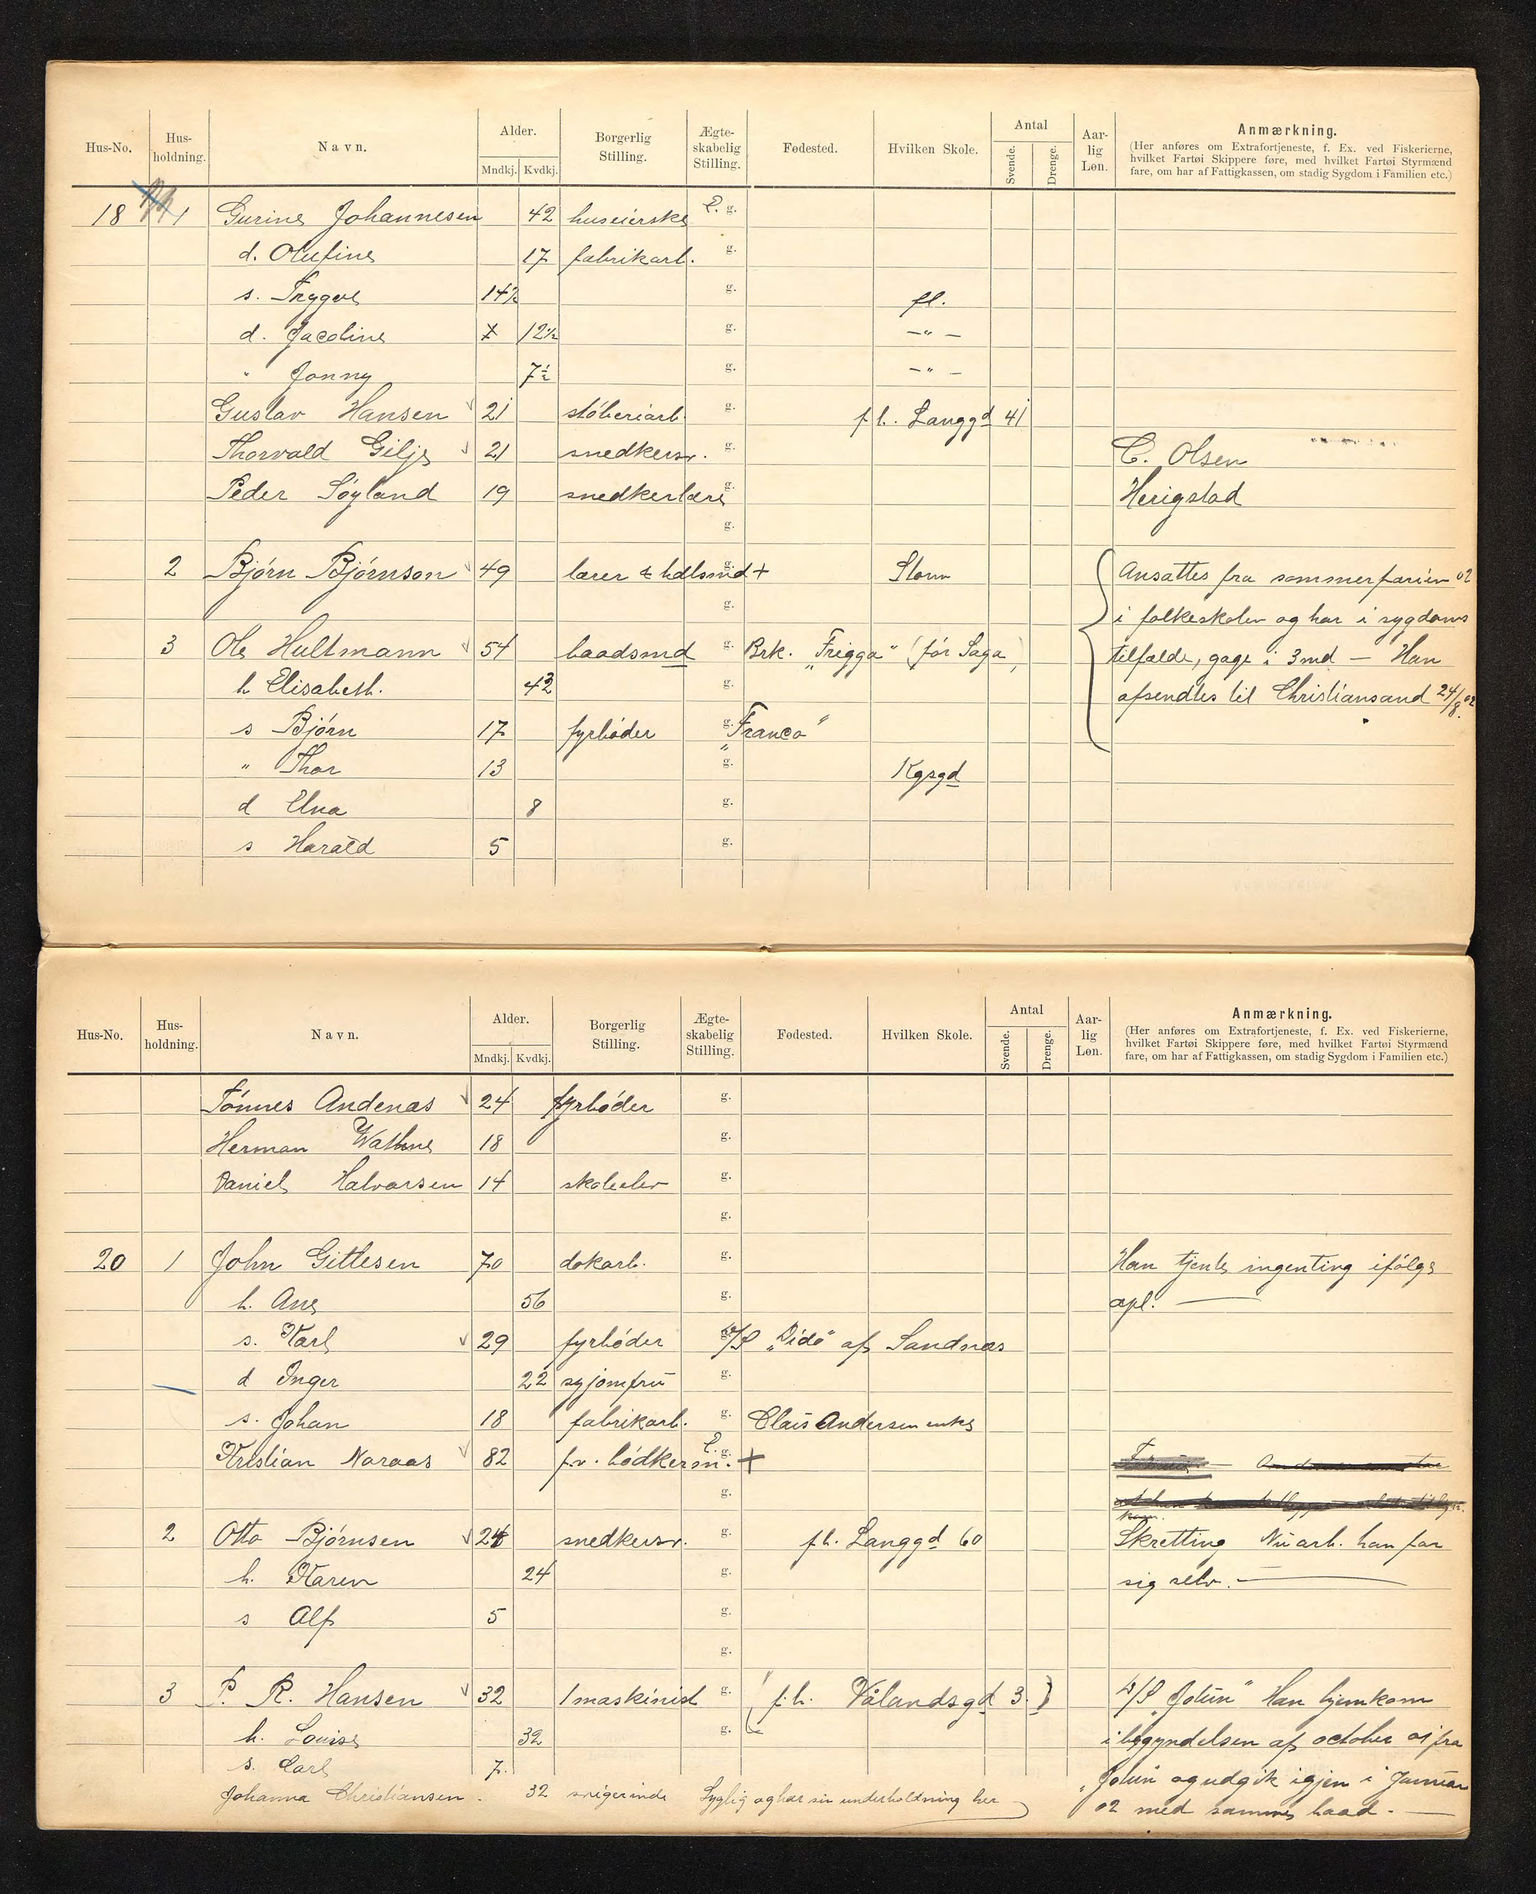 Hus-No. Hus-holdning. Navn. Alder. Mndkj. Kvdkj. Borgerlig Stilling. Ægte-skabelig Stilling. Fødested. Hvilken Skole. Antal Svende. Drenge. Aar-lig Løn. Anmærkning.
(Her anføres om Extrafortjeneste, f. Ex. ved Fiskerierne,
hvilket Fartøi Skippere føre, med hvilket Fartøi Styrmænd
fare, om har af Fattigkassen, om stadig Sygdom i Familien etc.)
18 1 Gurine Johannesen 42 huseierske E. g.
d. Olufine 17 fabrikarb. g.
s. Trygve 14½ g. fl.
d. Jacoline 12½ g. —"—
" Jonny 7½ g. —"—
Gustav Hansen 21 støberiarb. g. f.h. Langgd 41
Thorvald Gilje 21 snedkersv. g. C. Olsen
Peder Søyland 19 snedkerlære g. Herigstad
g.
2 Bjørn Bjørnson 49 lærer & hdlsmd + g. Storm Ansattes fra sommerferien 02
g. i folkeskolen og har i sygdoms
3 Ole Hultmann 54 baadsmd g. Brk. "Frigga" (før Saga) tilfælde, gage i 3 md — Han
h Elisabeth. 42 g. afsendtes til Christiansand 24/8 02.
s Bjørn 17 fyrbøder g. "Franco"
" Thor 13 g. Kgsgd
d Elna 8 g.
s Harald 5 g.
Hus-No. Hus-holdning. Navn. Alder. Mndkj. Kvdkj. Borgerlig Stilling. Ægte-skabelig Stilling. Fødested. Hvilken Skole. Antal Svende. Drenge. Aar-lig Løn. Anmærkning.
(Her anføres om Extrafortjeneste, f. Ex. ved Fiskerierne,
hvilket Fartøi Skippere føre, med hvilket Fartøi Styrmænd
fare, om har af Fattigkassen, om stadig Sygdom i Familien etc.)
Tønnes Andenæs 24 fyrbøder g.
Herman Wathne 18 g.
Daniel Halvorsen 14 skoleelev g.
g.
20 1 John Gittlesen 70 dokarb. g. Han tjente ingenting ifølge
h. Ane 56 g. opl. —
s. Karl 29 fyrbøder g. D/S "Dido" af Sandnæs
d Inger 22 syjomfru g.
s. Johan 18 fabrikarb. g. Claus Andersen enke
Kristian Naraas 82 fv. bødkersv. E. g. +
g.
2 Otto Bjørnsen 24 snedkersv. g. f.h. Langgd 60 Skretting Nu arb. han for
h. Karen 24 g. sig selv. —
s Alf 5 g.
g.
3 P. R. Hansen 32 1 maskinist g. (f.h. Vålandsgd 3.) D/S "Jotun" Han hjemkom
h. Louise 32 g. i begyndelsen af october 01 fra
s. Carl 7. "Jotun" og udgik igjen i Januar
Johanna Christiansen. 32 Syglig og har sin underholdning her 02 med samme baad. —